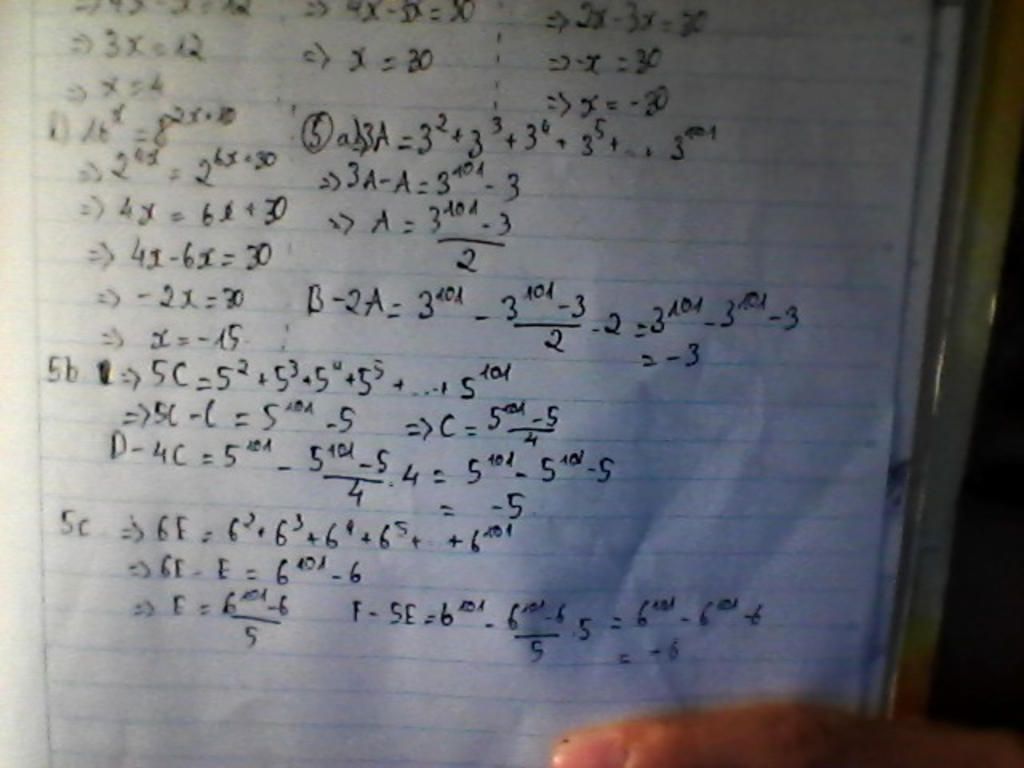 => 4x - x = 12
=> 3x = 12
=> x = 4
=> 4x - 3x = 30
=> x = 30
=> 2x - 3x = 30
=> -x = 30
=> x = -30
D) 16^x = 8^{2x+10}
=> 2^{4x} = 2^{6x+30}
=> 4x = 6x + 30
=> 4x - 6x = 30
=> -2x = 30
=> x = -15
⑤ a) 3A = 3^2 + 3^3 + 3^4 + 3^5 + ... + 3^{101}
=> 3A - A = 3^{101} - 3
=> A = \frac{3^{101} - 3}{2}
B - 2A = 3^{101} - \frac{3^{101} - 3}{2} . 2 = 3^{101} - 3^{101} - 3
= -3
5b => 5C = 5^2 + 5^3 + 5^4 + 5^5 + ... + 5^{101}
=> 5C - C = 5^{101} - 5 => C = \frac{5^{101} - 5}{4}
D - 4C = 5^{101} - \frac{5^{101} - 5}{4} . 4 = 5^{101} - 5^{101} - 5
= -5
5c => 6E = 6^2 + 6^3 + 6^4 + 6^5 + ... + 6^{101}
=> 6E - E = 6^{101} - 6
=> E = \frac{6^{101} - 6}{5} F - 5E = 6^{101} - \frac{6^{101} - 6}{5} . 5 = 6^{101} - 6^{101} - 6
= -6